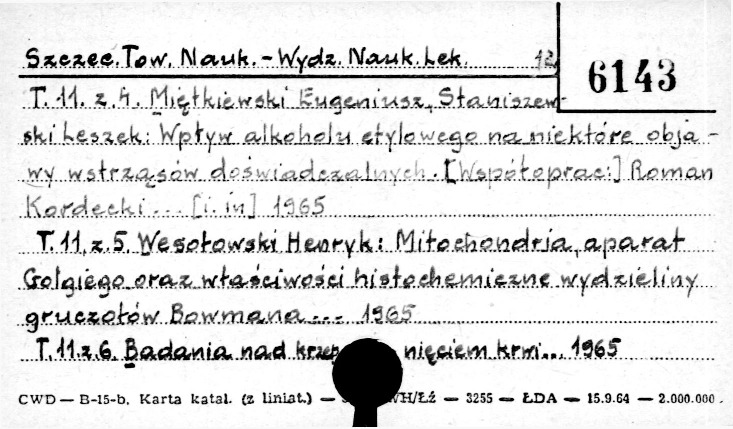 Szczec. Tow. Nauk. - Wydz. Nauk. Lek. 12
6143
T. 11. z. 4. Miętkiewski Eugeniusz, Staniszew-
ski Leszek: Wpływ alkoholu etylowego na niektóre obja-
wy wstrząsów doświadczalnych. [Współoprac:] Roman
Kordecki... [i. in] 1965
T. 11. z. 5. Wesołowski Henryk: Mitochondria, aparat
Golgiego oraz właściwości histochemiczne wydzieliny
gruczołów Bowmana... 1965
T. 11. z. 6. Badania nad krzep nięciem krwi... 1965
CWD — B-15-b. Karta katal. (z liniat.) — WH/Łż — 3255 — ŁDA — 15.9.64 — 2.000.000.